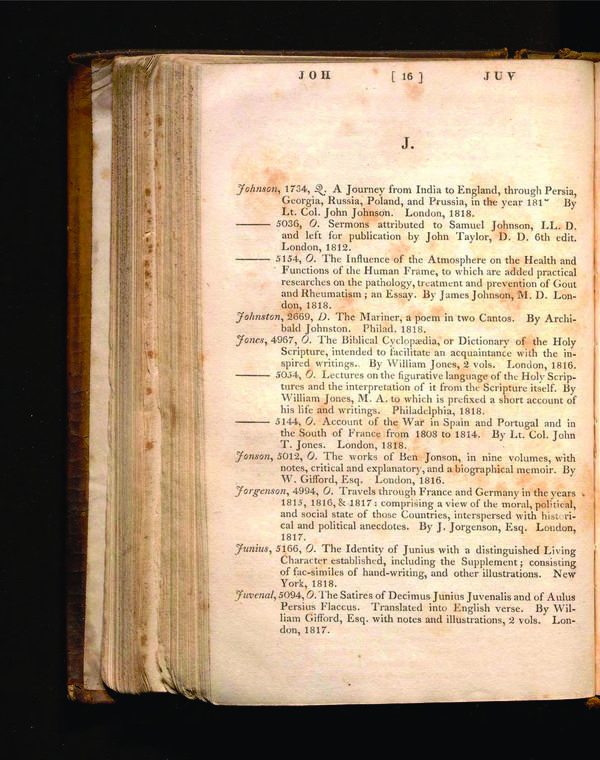 JOH [ 16 ] JUV
J.
Johnson, 1734, Q. A Journey from India to England, through Persia,
Georgia, Russia, Poland, and Prussia, in the year 181 By
Lt. Col. John Johnson. London, 1818.
——— 5036, O. Sermons attributed to Samuel Johnson, LL. D.
and left for publication by John Taylor, D. D. 6th edit.
London, 1812.
——— 5154, O. The Influence of the Atmosphere on the Health and
Functions of the Human Frame, to which are added practical
researches on the pathology, treatment and prevention of Gout
and Rheumatism; an Essay. By James Johnson, M. D. Lon-
don, 1818.
Johnston, 2669, D. The Mariner, a poem in two Cantos. By Archi-
bald Johnston. Philad. 1818.
Jones, 4967, O. The Biblical Cyclopædia, or Dictionary of the Holy
Scripture, intended to facilitate an acquaintance with the in-
spired writings. By William Jones, 2 vols. London, 1816.
——— 5054, O. Lectures on the figurative language of the Holy Scrip-
tures and the interpretation of it from the Scripture itself. By
William Jones, M. A. to which is prefixed a short account of
his life and writings. Philadelphia, 1818.
——— 5144, O. Account of the War in Spain and Portugal and in
the South of France from 1808 to 1814. By Lt. Col. John
T. Jones. London, 1818.
Jonson, 5012, O. The works of Ben Jonson, in nine volumes, with
notes, critical and explanatory, and a biographical memoir. By
W. Gifford, Esq. London, 1816.
Jorgenson, 4994, O. Travels through France and Germany in the years
1815, 1816, & 1817: comprising a view of the moral, political,
and social state of those Countries, interspersed with histori-
cal and political anecdotes. By J. Jorgenson, Esq. London,
1817.
Junius, 5166, O. The Identity of Junius with a distinguished Living
Character established, including the Supplement; consisting
of fac-similes of hand-writing, and other illustrations. New
York, 1818.
Juvenal, 5094, O. The Satires of Decimus Junius Juvenalis and of Aulus
Persius Flaccus. Translated into English verse. By Wil-
liam Gifford, Esq. with notes and illustrations, 2 vols. Lon-
don, 1817.